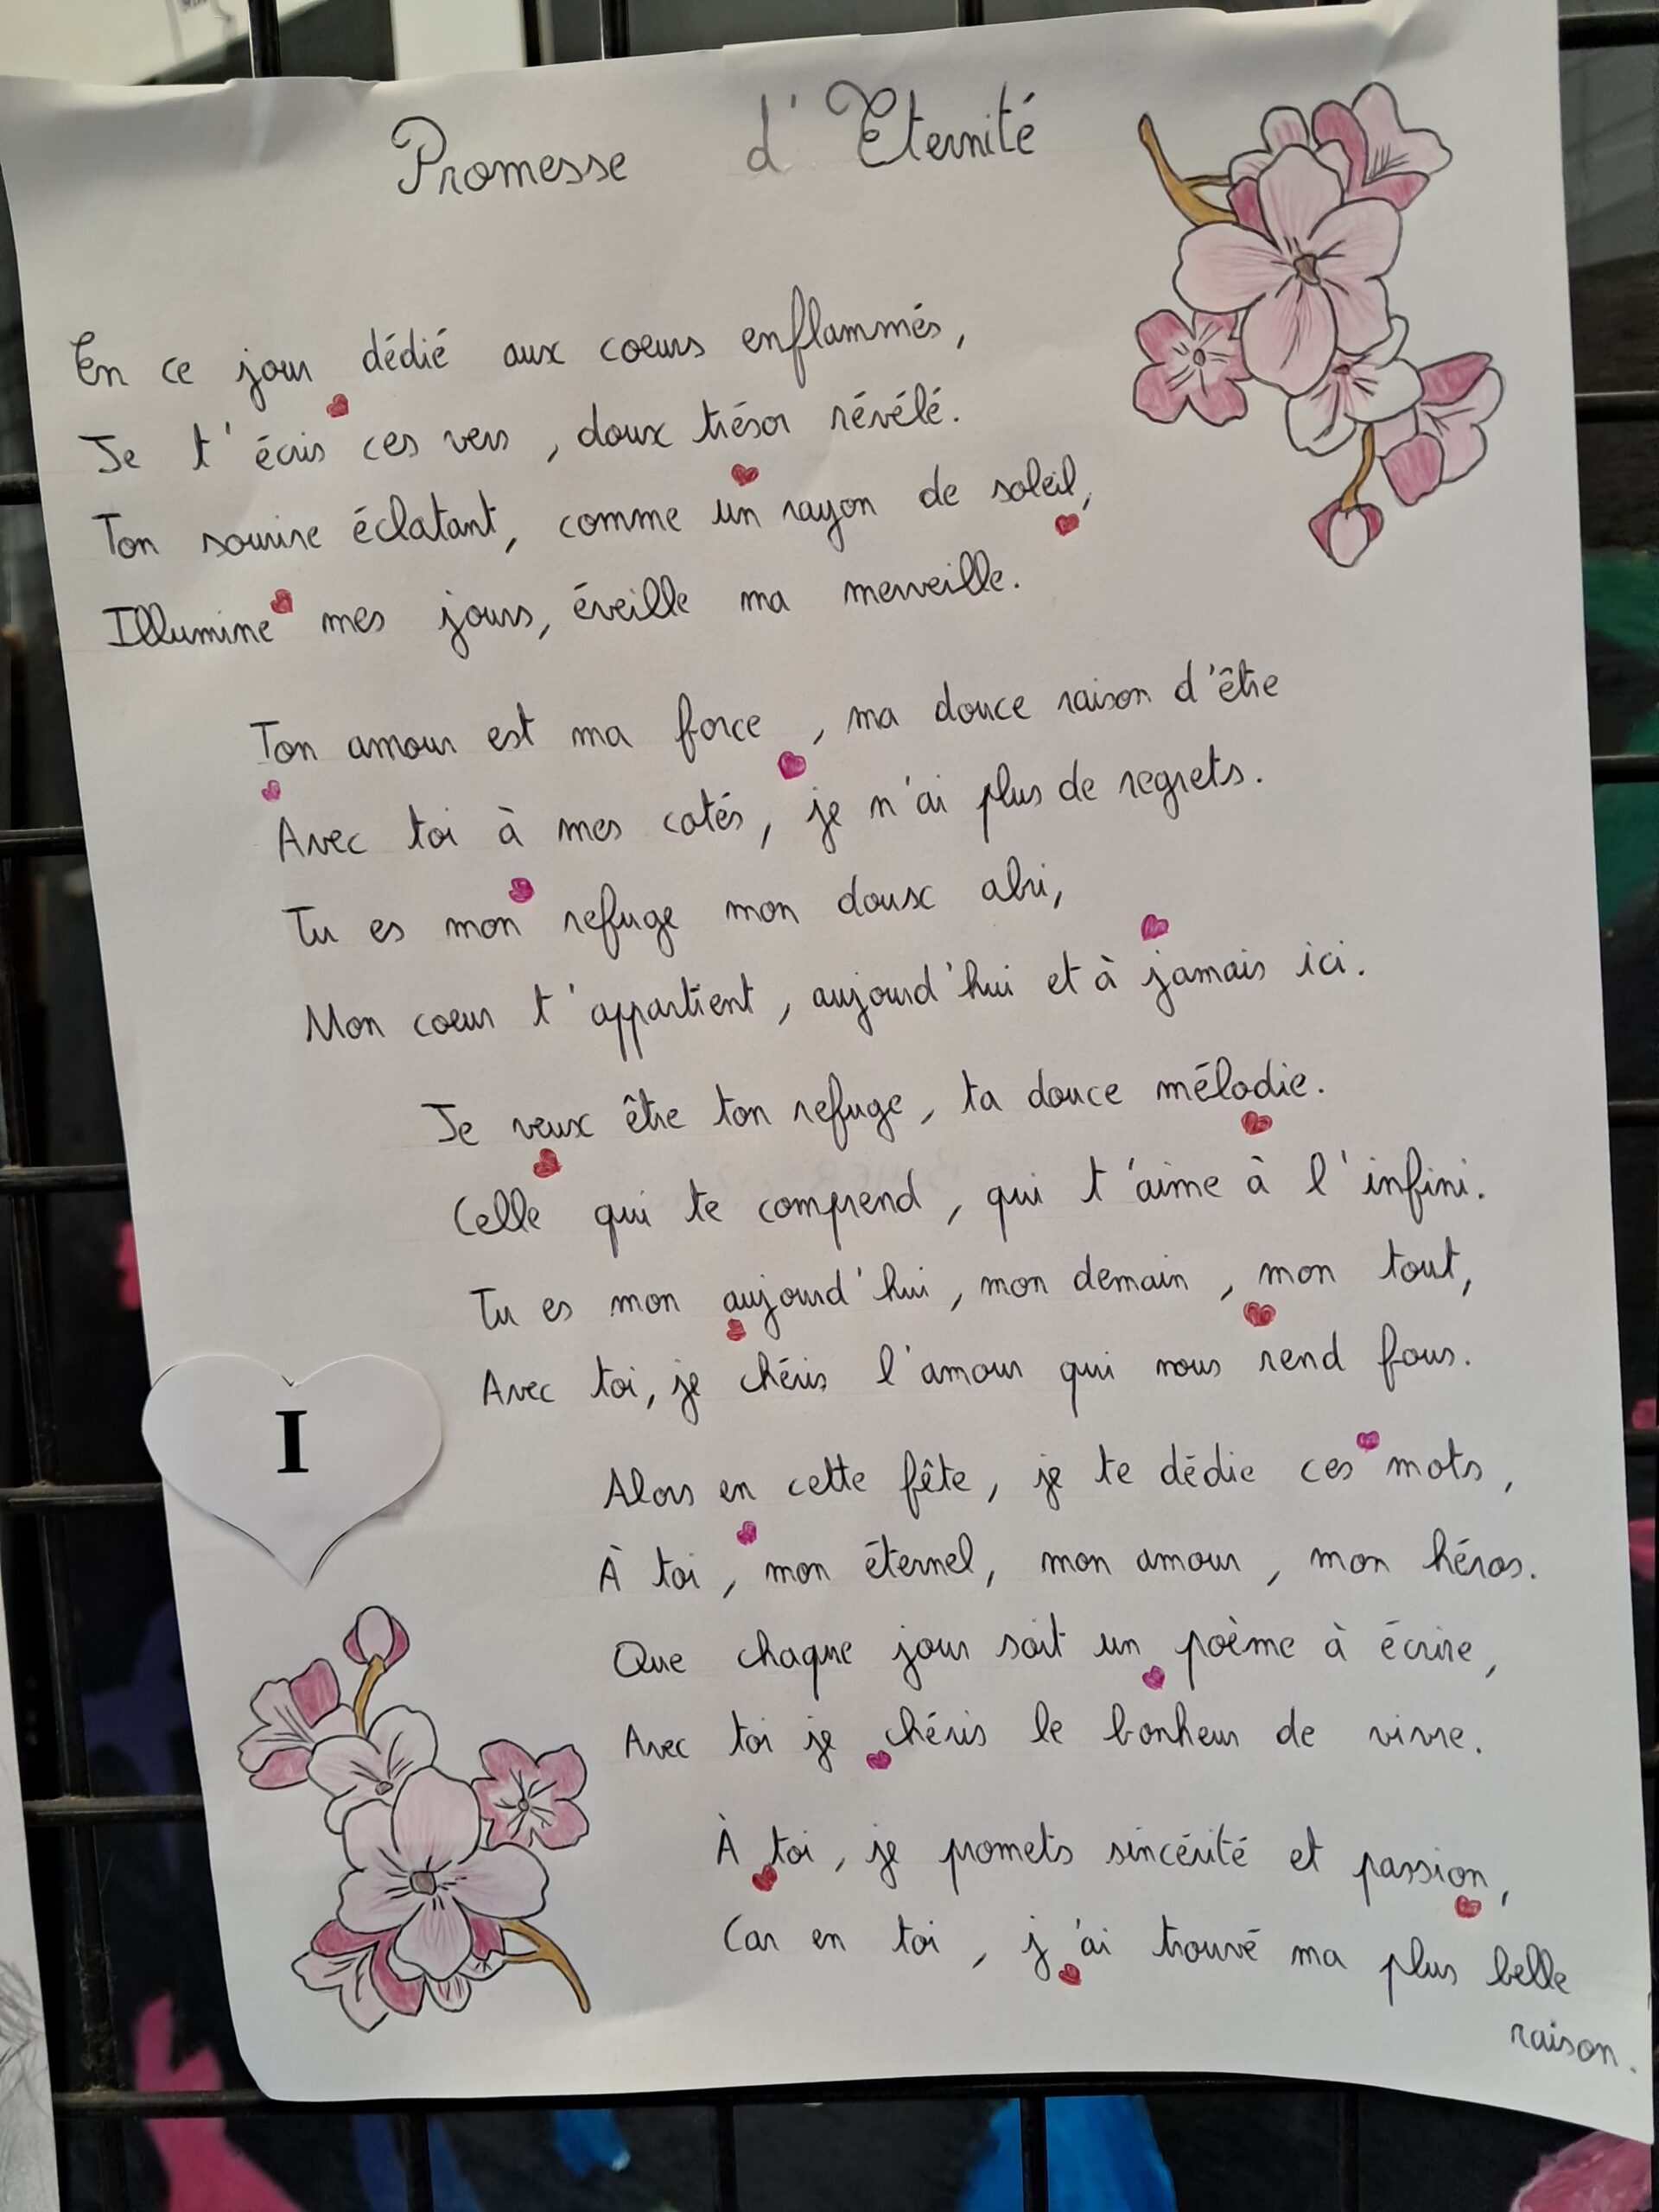 Promesse d'Eternité
En ce jour dédié aux coeurs enflammés,
Je t'écris ces vers, doux trésor révélé.
Ton sourire éclatant, comme un rayon de soleil,
Illumine mes jours, éveille ma merveille.
Ton amour est ma force, ma douce raison d'être
Avec toi à mes cotés, je n'ai plus de regrets.
Tu es mon refuge mon doux abri,
Mon coeur t'appartient, aujourd'hui et à jamais ici.
Je veux être ton refuge, ta douce mélodie.
Celle qui te comprend, qui t'aime à l'infini.
Tu es mon aujourd'hui, mon demain, mon tout,
Avec toi, je chéris l'amour qui nous rend fous.
I
Alors en cette fête, je te dédie ces mots,
À toi, mon éternel, mon amour, mon héros.
Que chaque jour soit un poème à écrire,
Avec toi je chéris le bonheur de vivre.
À toi, je promets sincérité et passion,
Car en toi, j'ai trouvé ma plus belle
raison.